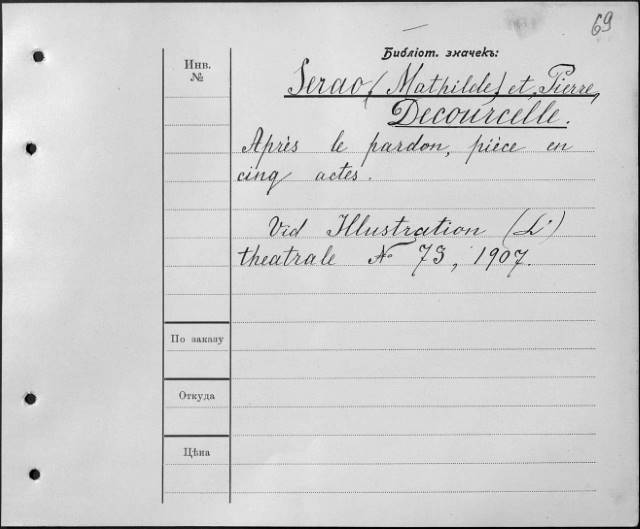 69
Библіот. значекъ:
Инв.
№
Serao (Mathilde) et Pierre
Decourcelle.
Après le pardon, pièce en
cinq actes.
Vid Illustration (L')
theatrale № 73, 1907.
По заказу
Откуда
Цѣна